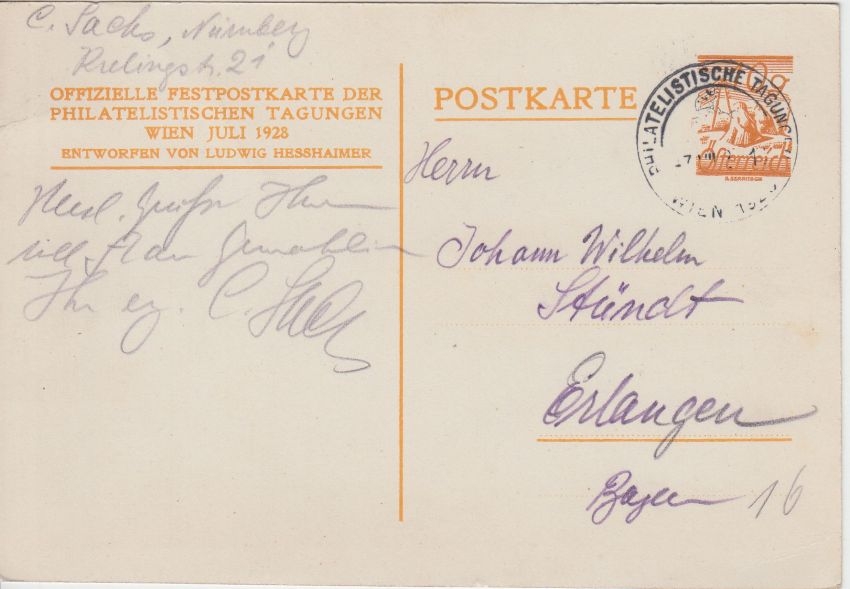 C. Sachs, Nürnberg
Krelingstr. 21
OFFIZIELLE FESTPOSTKARTE DER
PHILATELISTISCHEN TAGUNGEN
WIEN JULI 1928
ENTWORFEN VON LUDWIG HESSHAIMER
Herzl. Grüße Ihnen
Frau Gemahlin
Ihr C. Sachs
POSTKARTE
PHILATELISTISCHE TAGUNGEN
WIEN 1928
Österreich
Herrn
Johann Wilhelm
Stündt
Erlangen
Bayern 16